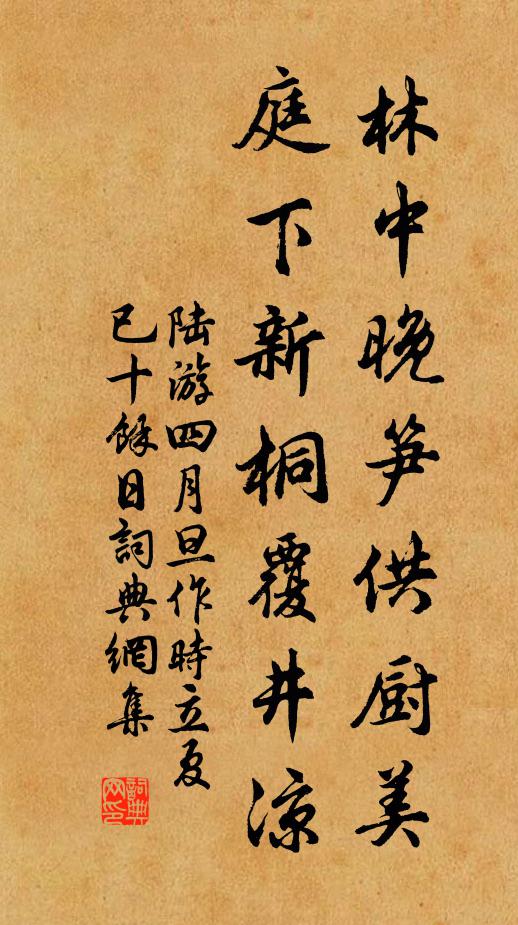 林中晚笋供厨美
庭下新桐覆井凉
陆游四月旦作时立夏
已十餘日詞典網集
詞典
网印